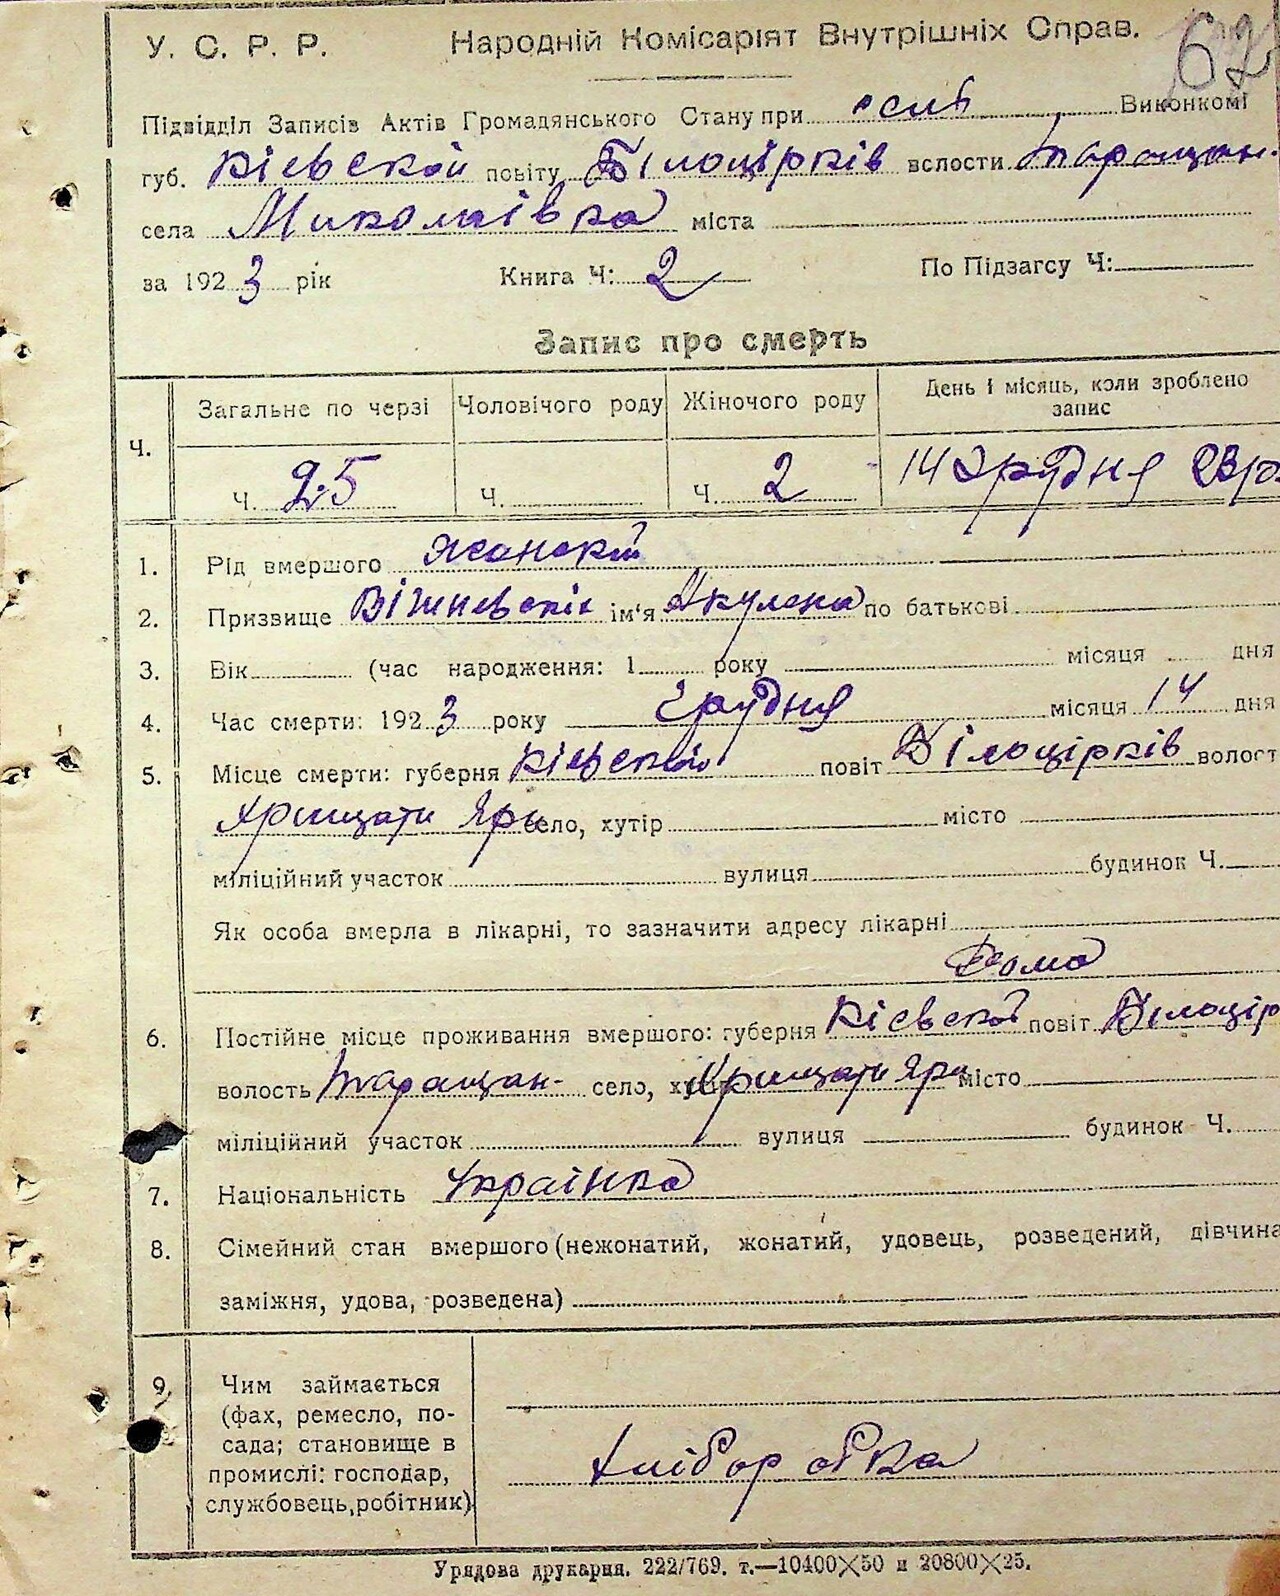 62
У. С. Р. Р. Народній Комісаріят Внутрішніх Справ.
Підвідділ Записів Актів Громадянського Стану при Виконкомі
губ. Кіевской повіту Білоцірків вслости Таращан.
села Миколаівка міста
за 1923 рік Книга Ч: 2 По Підзагсу Ч:
Запис про смерть
Ч. Загальне по черзі Чоловічого роду Жіночого роду День і місяць, коли зроблено запис
Ч. 25 Ч. Ч. 2 14 Грудня 23 р.
1. Рід вмершого
2. Призвище ім'я Акулена по батькові
3. Вік (час народження: 1 року місяця дня
4. Час смерти: 1923 року Грудня місяця 14 дня
5. Місце смерти: губерня Кіевской повіт Білоцірків волост
Хрищати Яри село, хутір місто
міліційний участок вулиця будинок Ч.
Як особа вмерла в лікарні, то зазначити адресу лікарні
Дома
6. Постійне місце проживання вмершого: губерня Кіевской повіт Білоцір
волость Таращан- село, хутір Хрищати Яри місто
міліційний участок вулиця будинок Ч.
7. Національність Украінка
8. Сімейний стан вмершого (нежонатий, жонатий, удовець, розведений, дівчина
заміжня, удова, розведена)
9. Чим займається
(фах, ремесло, по-
сада; становище в
промислі: господар,
службовець, робітник)
Хлібор обка
Урядова друкарня. 222/769. т.—10400×50 и 20800×25.